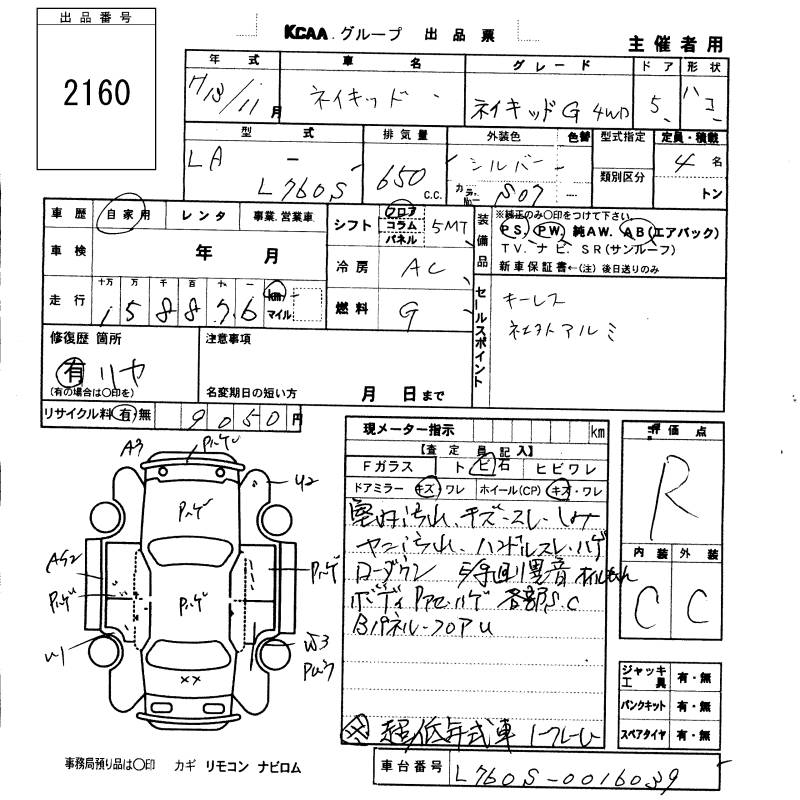 出品番号
2160
KCAA グループ 出品票
主催者用
年式 車名 グレード ドア 形状
H13/11月 ネイキッド ネイキッドG 4WD 5 ハコ
型式 排気量 外装色 色替 型式指定 定員・積載
LA - L760S 650 c.c. シルバー カラーNo. S07 類別区分 4名
トン
車歴 自家用 レンタ 事業.営業車
シフト フロア コラム パネル 5MT
装備品
※純正のみ〇印をつけて下さい。
PS. PW. 純AW. AB(エアバック)
TV. ナビ. SR(サンルーフ)
新車保証書←(注)後日送りのみ
車検 年 月
冷房 AC
走行 十万 万 千 百 十 一
158876 km マイル
燃料 G
セールスポイント
キーレス
社外アルミ
修復歴 箇所
有 リヤ
(有の場合は〇印を)
注意事項
名変期日の短い方 月 日まで
リサイクル料 有 無 9050円
現メーター指示 km
【査定員記入】
Fガラス トビ石 ヒビワレ
ドアミラー キズ ワレ ホイール(CP) キズ・ワレ
室内汚れ、キズ・スレ・
ヤニ汚れ、ハンドルスレ・ハゲ
ローダウン
ボディ ハゲ 各部S.C
Bパネル・フロアU
超低年式車 ノークレーム
評価点
R
内装 外装
C C
A3 ハゲ
U2
ハゲ
AS2
ハゲ
ハゲ
ハゲ
U1
××
ジャッキ工具 有・無
パンクキット 有・無
スペアタイヤ 有・無
事務局預り品は〇印 カギ リモコン ナビロム
車台番号 L760S-0016039